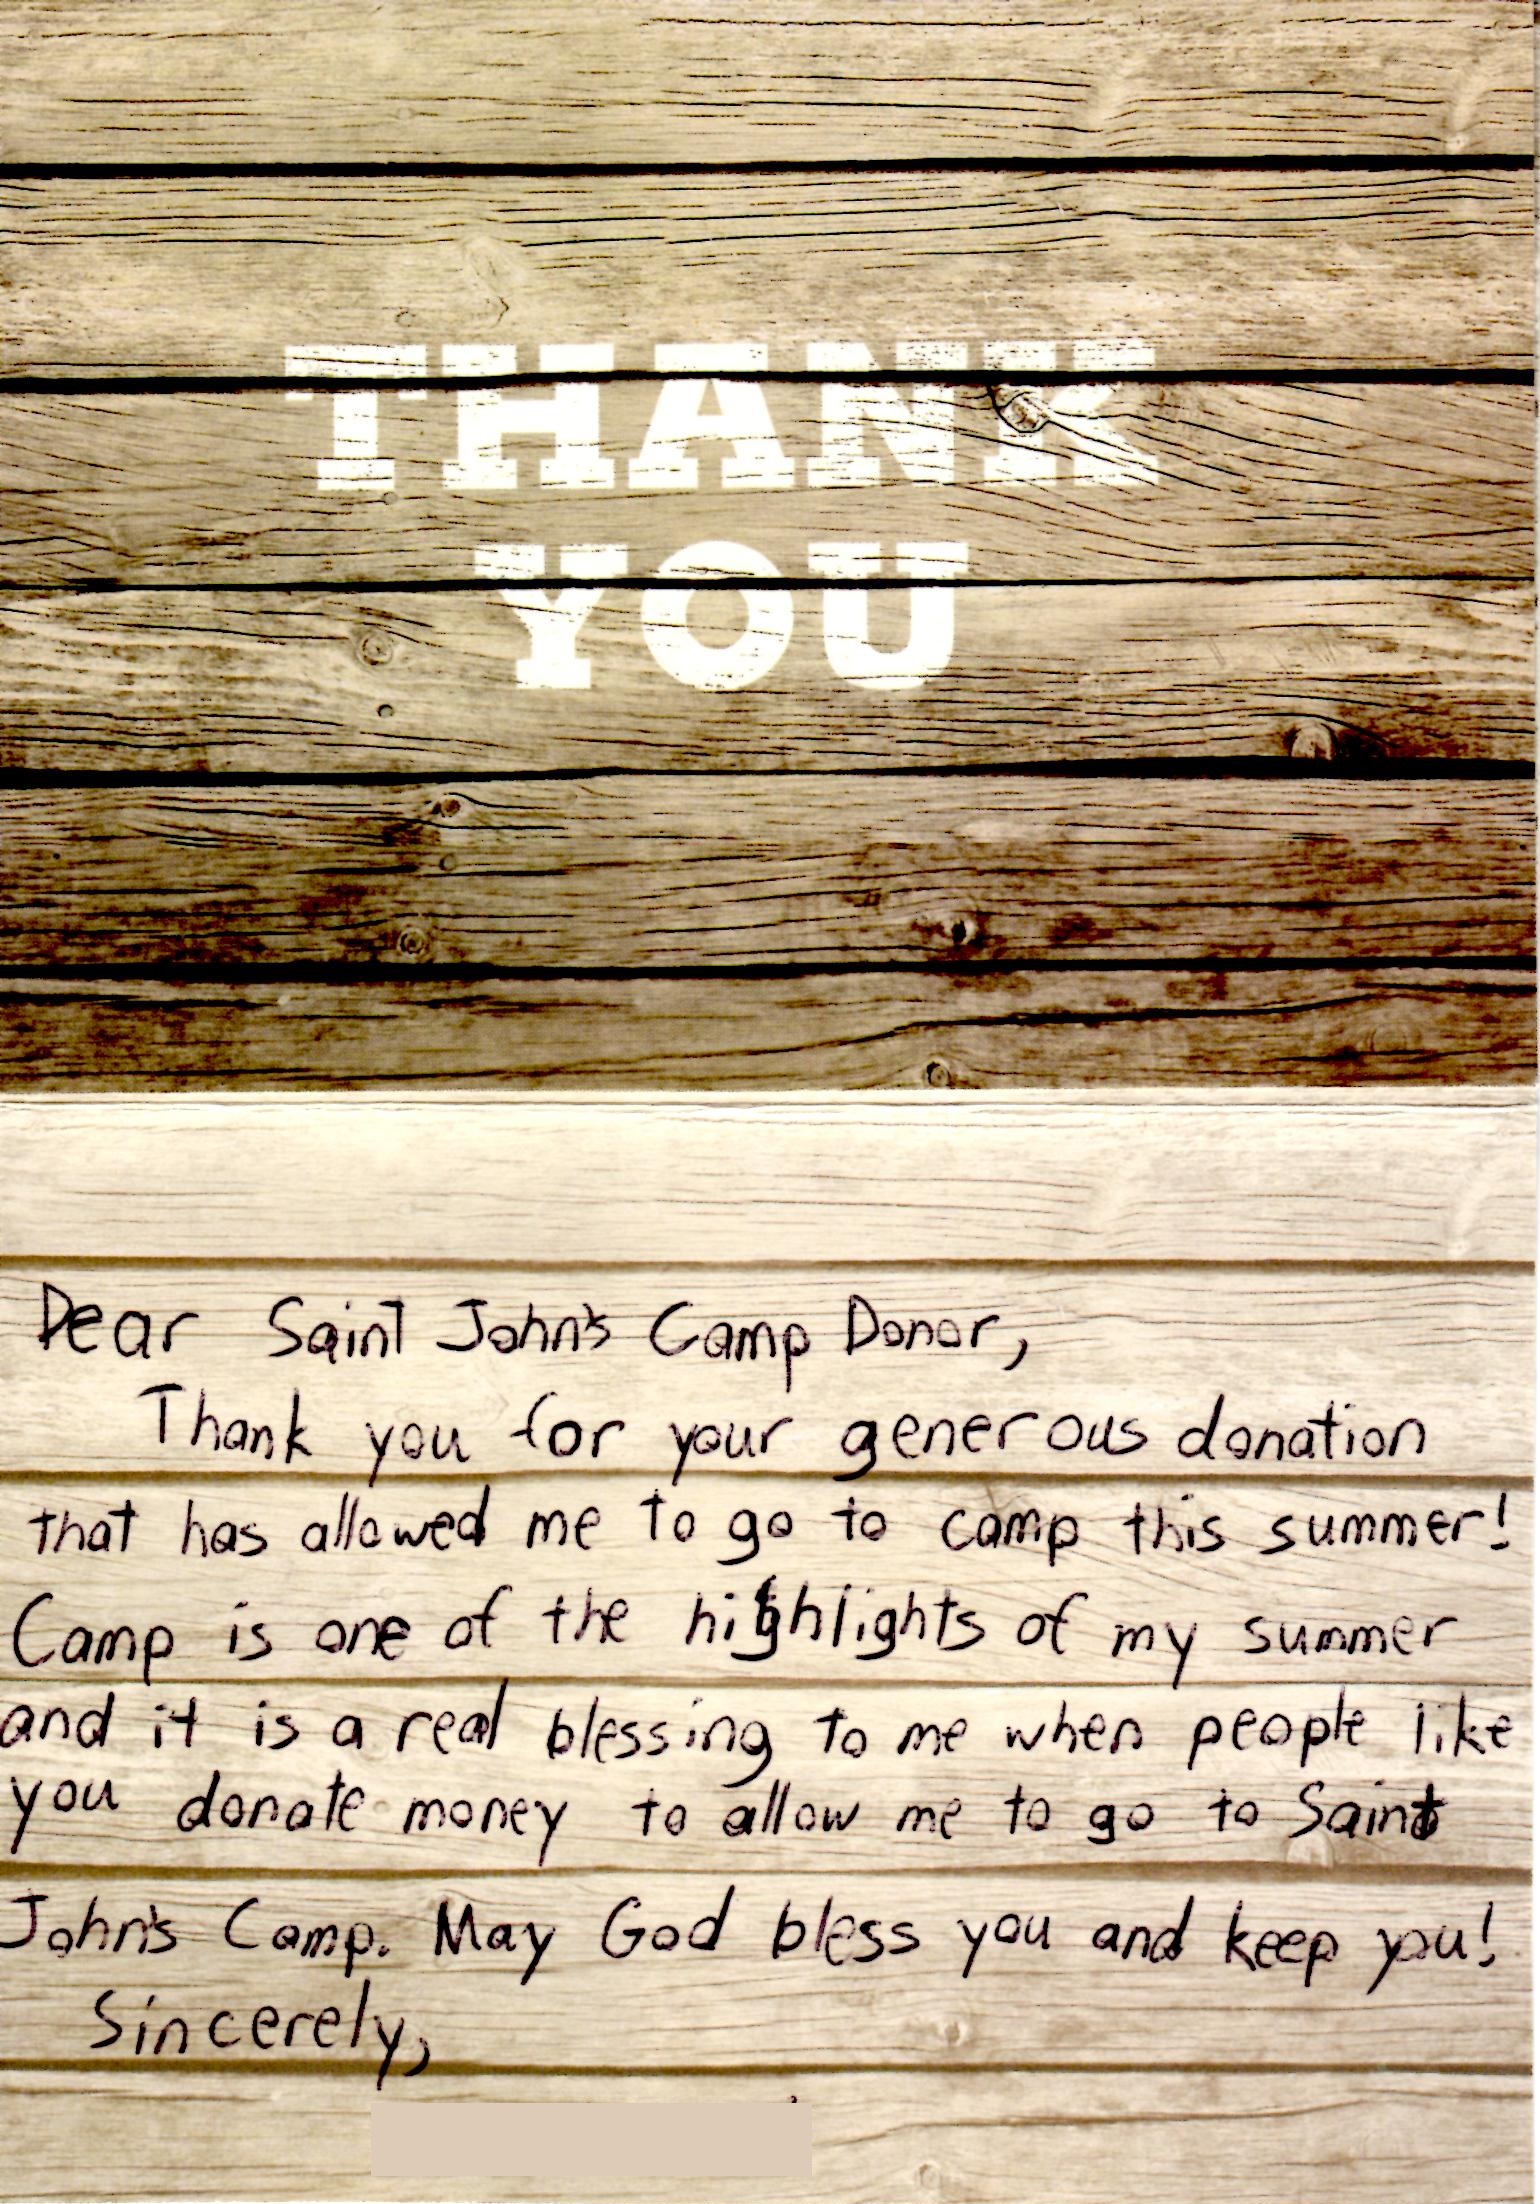 THANK
YOU
Dear Saint John's Camp Donor,
Thank you for your generous donation
that has allowed me to go to camp this summer!
Camp is one of the highlights of my summer
and it is a real blessing to me when people like
you donate money to allow me to go to Saint
John's Camp. May God bless you and keep you!
Sincerely,